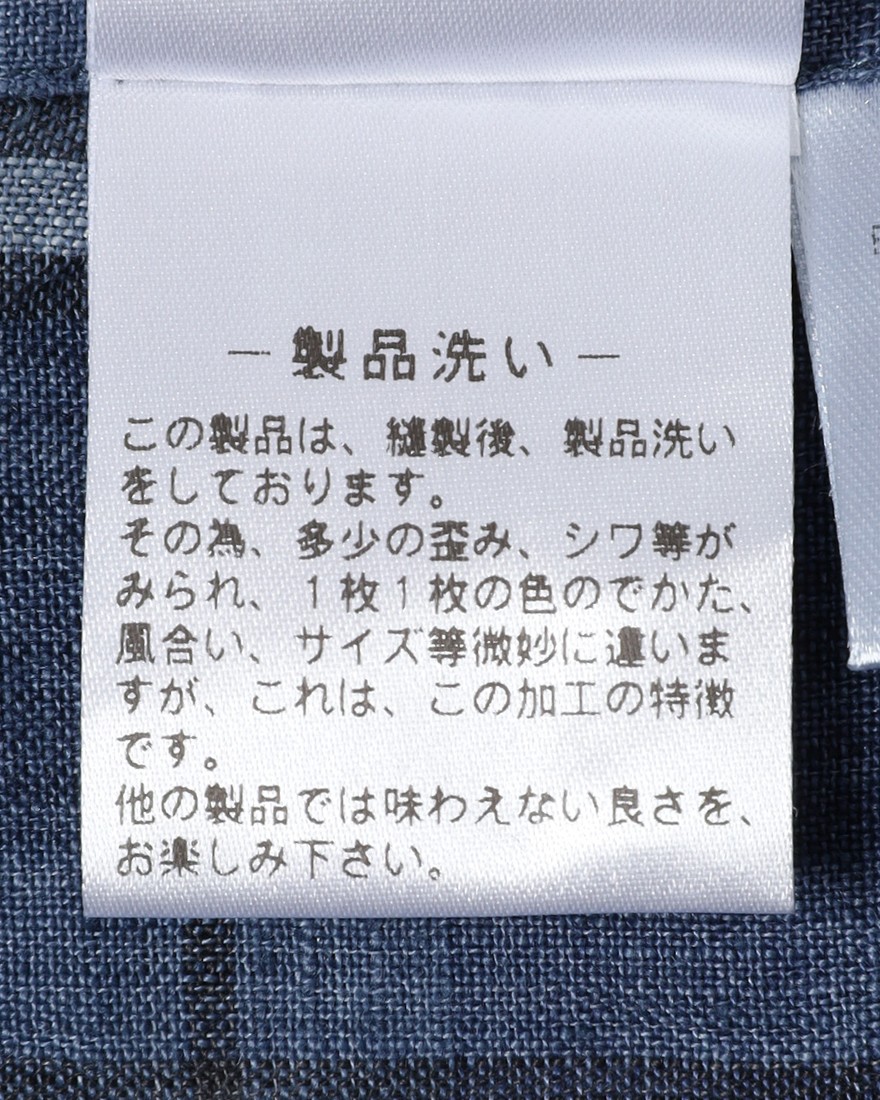 －製品洗い－
この製品は、縫製後、製品洗い
をしております。
その為、多少の歪み、シワ等が
みられ、１枚１枚の色のでかた、
風合い、サイズ等微妙に違いま
すが、これは、この加工の特徴
です。
他の製品では味わえない良さを、
お楽しみ下さい。